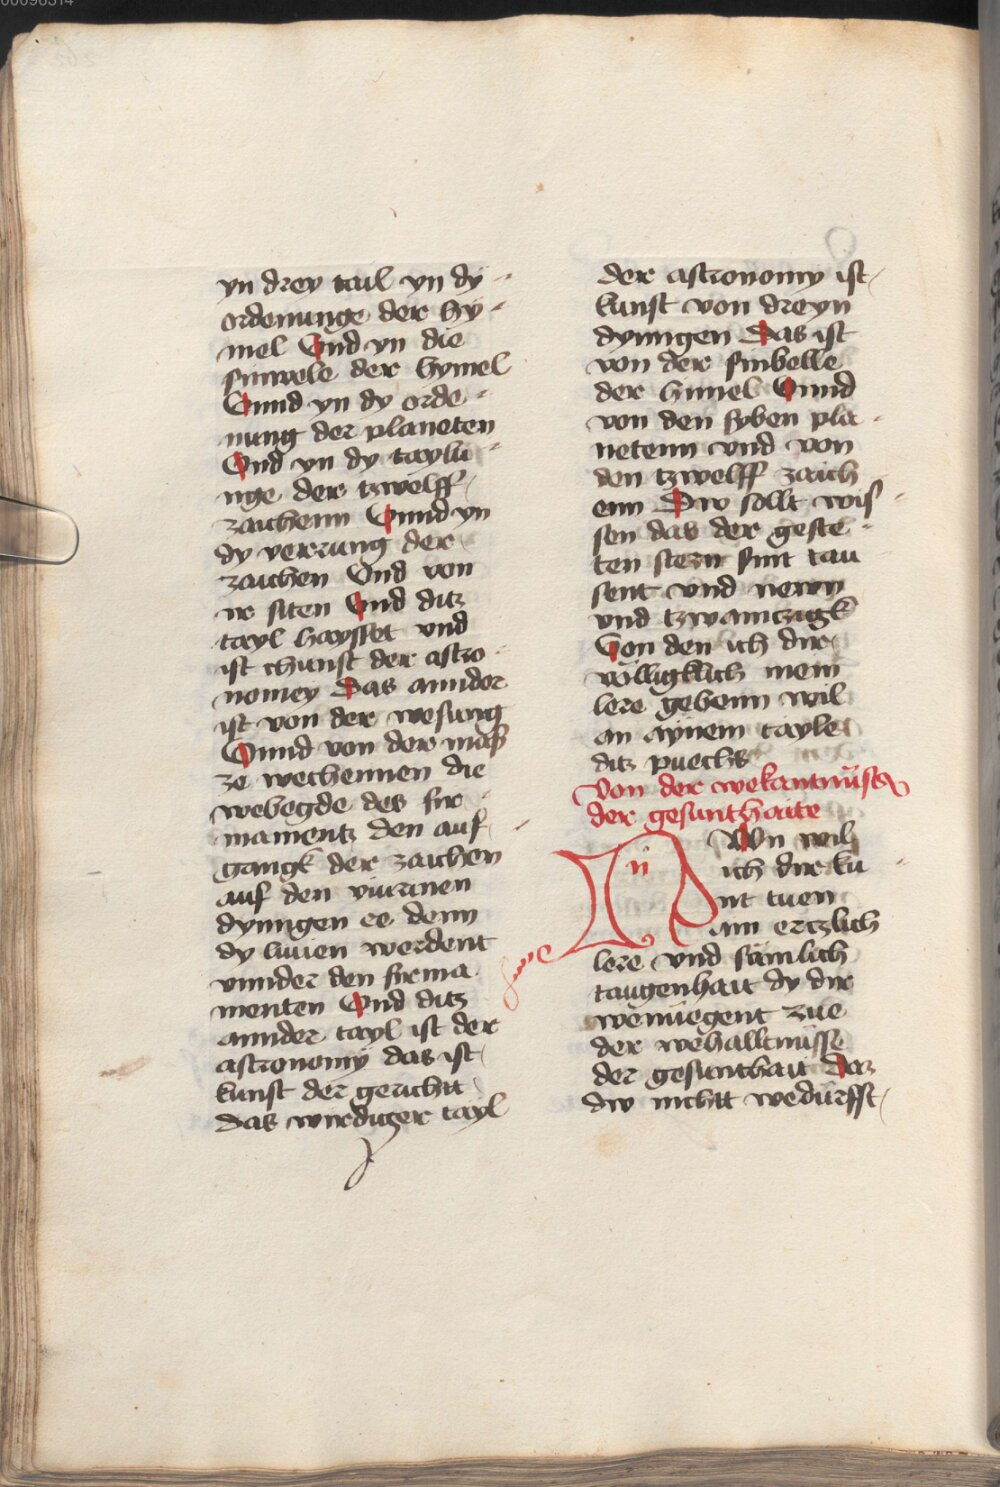 00096314
yn drey tail yn dy
ordenunge der hy
mel Vnd yn die
sinwele der hymel
Vnnd yn dy orde
nung der planeten
Vnd yn dy taylu
nge der tzwelff
zaichenn Vnnd yn
dy verrung der
zaichen Vnd von
ir siten Vnd ditz
tayl haysset vnd
ist chunst der astro
nomey Das annder
ist von der wesung
Vnnd von der mass
ze wechennen die
webegde des fir
mamentz den auf
gangk der zaichen
auf den
dyningen ee denn
dy werdent
vnnder den firma
menten Vnd ditz
annder tayl ist der
astronomy das ist
kunst der gericht
Das wirdiger tayl
der astronomy ist
kunst von dreyn
dyningen Das ist
von der sinbelle
der himel Vnnd
von den syben pla
netenn vnd von
den tzwelff zaich
enn Dw sollt wis
sen das der geste
ten stern sint tau
sent vnd newn
vnd tzwainczigk
Von den ich dir
völligklich mein
lere gebenn wil
an aynem tayle
ditz puechs
Von der wekantnüss
der gesunthaite
Nu wil
ich dir ku
nt tuen
ain ercztlich
lere vnd sämlich
taugenhait dy dir
wenüegent zue
der wehalltnüsse
der gesunthait Daz
dw nichtt wedürffst